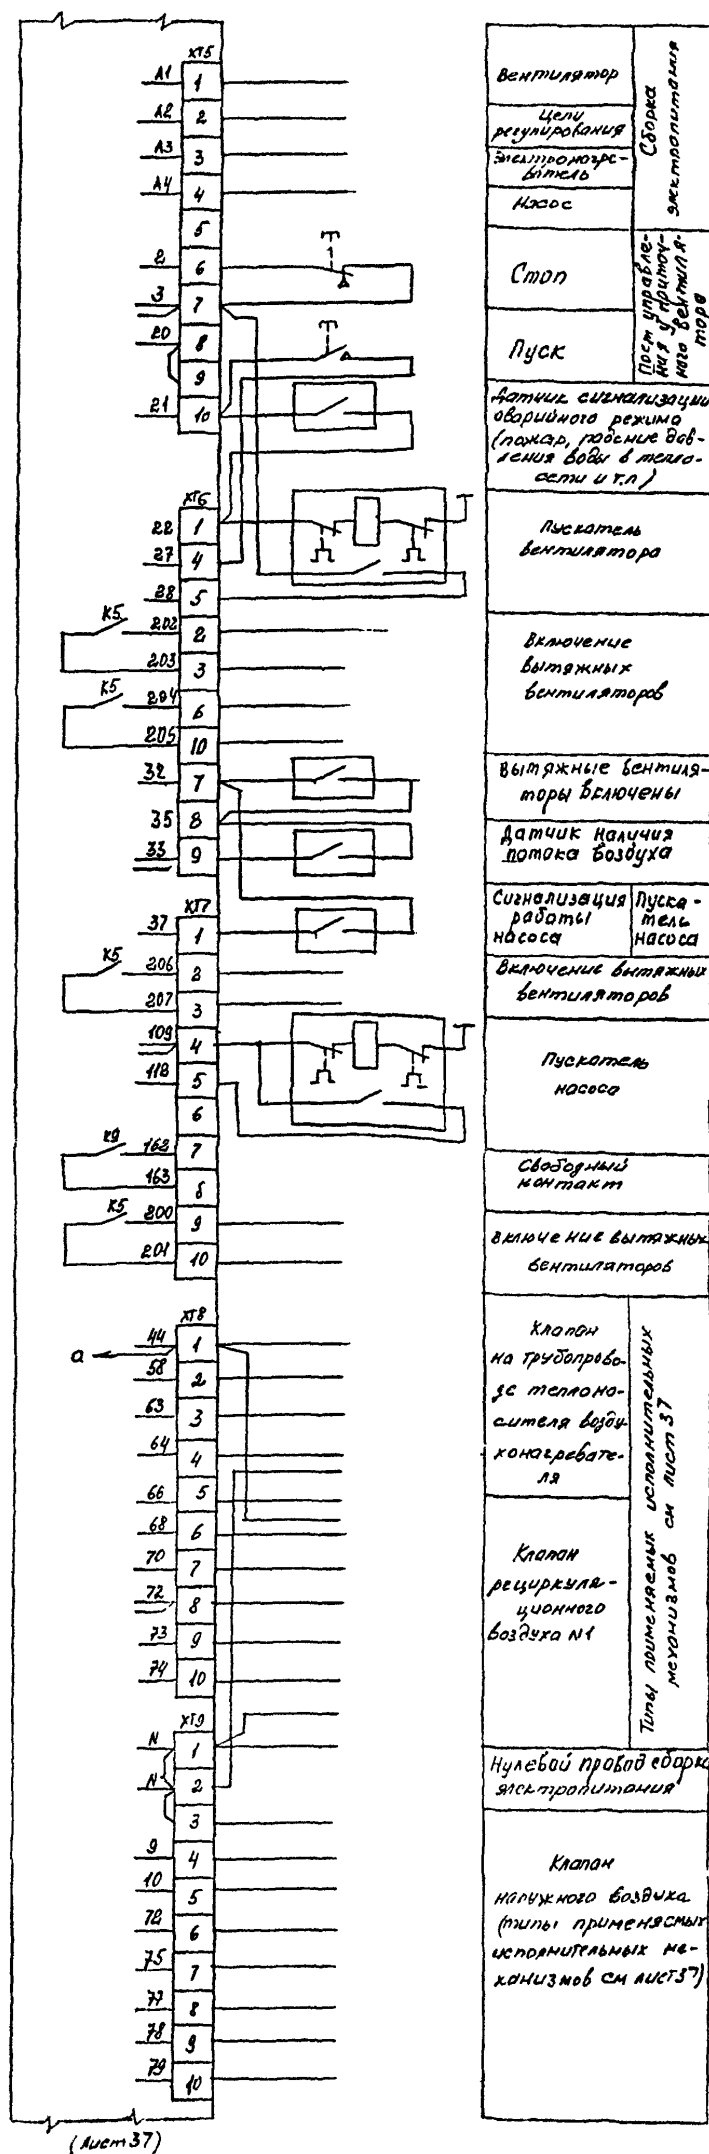 ХТ5
А1 1
А2 2
А3 3
А4 4
5
2 6
3 7
20 8
9
21 10
ХТ6
22 1
27 4
28 5
К5 202 2
203 3
К5 204 6
205 10
32 7
35 8
33 9
ХТ7
37 1
К5 206 2
207 3
109 4
118 5
6
К9 162 7
163 8
К5 200 9
201 10
ХТ8
а 44 1
58 2
63 3
64 4
66 5
68 6
70 7
72 8
73 9
74 10
ХТ9
N 1
N 2
3
9 4
10 5
72 6
75 7
77 8
78 9
79 10
(Лист 37)
Вентилятор
Цепи
регулирования
Электронагре-
витель
Насос
Сборка
электропитания
Стоп
Пуск
Пост управле-
ния у приточ-
ного вентиля-
тора
Датчик сигнализации
аварийного режима
(пожар, падение дав-
ления воды в тепло-
сети и т.п)
Пускатель
вентилятора
Включение
вытяжных
вентиляторов
Вытяжные вентиля-
торы включены
Датчик наличия
потока воздуха
Сигнализация
работы
насоса
Пуска-
тель
насоса
Включение вытяжных
вентиляторов
Пускатель
насоса
Свободный
контакт
Включение вытяжных
вентиляторов
Клапан
на трубопрово-
де теплоно-
сителя возду-
хонагревате-
ля
Клапан
рециркуля-
ционного
воздуха N1
Типы применяемых исполнительных
механизмов см лист 37
Нулевой провод сборки
электропитания
Клапан
наружного воздуха
(типы применяемых
исполнительных ме-
ханизмов см лист 37)